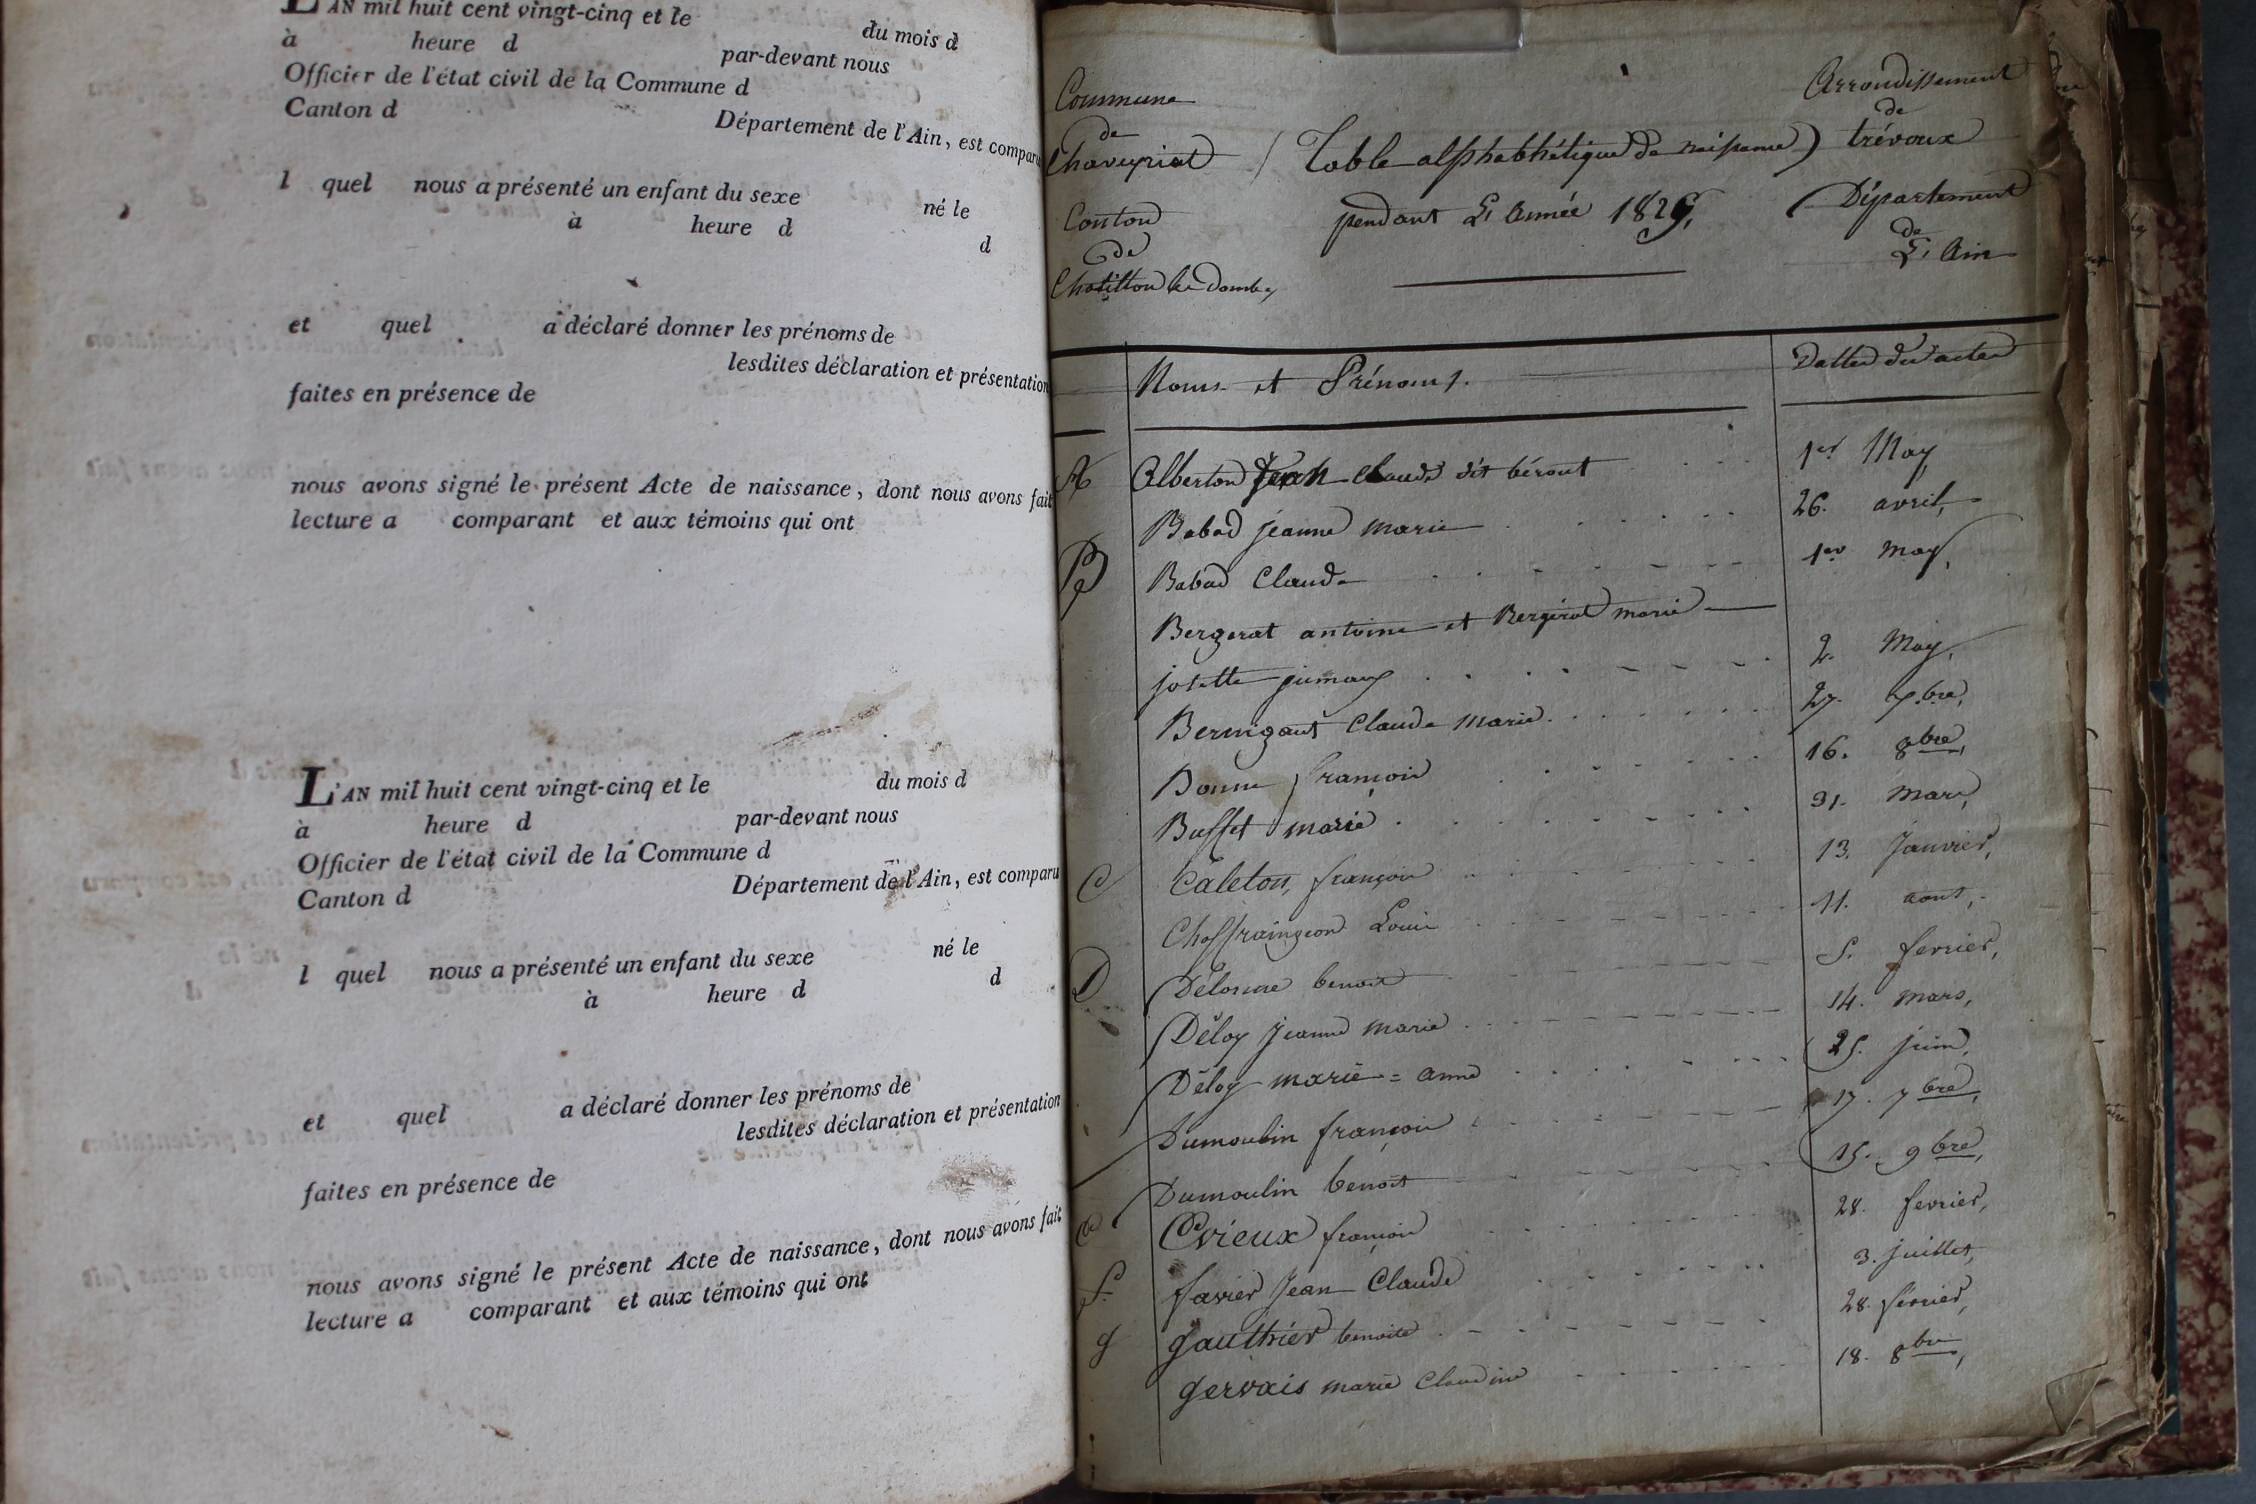 L'AN mil huit cent vingt-cinq et le du mois d
à heure d par-devant nous
Officier de l'état civil de la Commune d
Canton d Département de l'Ain, est comparu
l quel nous a présenté un enfant du sexe né le
à heure d d
et quel a déclaré donner les prénoms de
lesdites déclaration et présentation
faites en présence de
nous avons signé le présent Acte de naissance, dont nous avons fait
lecture a comparant et aux témoins qui ont
L'AN mil huit cent vingt-cinq et le du mois d
à heure d par-devant nous
Officier de l'état civil de la Commune d
Canton d Département de l'Ain, est comparu
l quel nous a présenté un enfant du sexe né le
à heure d d
et quel a déclaré donner les prénoms de
lesdites déclaration et présentation
faites en présence de
nous avons signé le présent Acte de naissance, dont nous avons fait
lecture a comparant et aux témoins qui ont
Commune
de
Chaveyriat
Canton
de
Chatillon les domb.
Table alphabhétique de naissance
pendant L'année 1825,
Arrondissement
de
trévoux
Département
de
L'Ain
Noms et Prénoms. Dattes des actes
A Alberton Jean Claude dit béront 1er May,
Babad jeanne marie 26. avril,
B Babad Claude 1er may,
Bergerat antoine et Bergérat marie
josette jumaux 2. May,
Beringaut Claude Marie 27. 7.bre,
Bonne françois 16. 8bre,
Buffet marie 31. mars,
C Caleton, françois 13. Janvier,
Choffraingeon Louis 11. aout,
D benoit 5. fevrier,
Déloy Jeanne marie 14. mars,
Déloy marie=anne 25. juin,
Dumoulin françois 17. 7bre,
Dumoulin benoit 15. 9bre,
E Evieux françois 28. fevrier,
f. favier Jean Claude 3. juillet,
g gauthier benoite 28. févrièr,
gervais marie Claudine 18. 8bre,